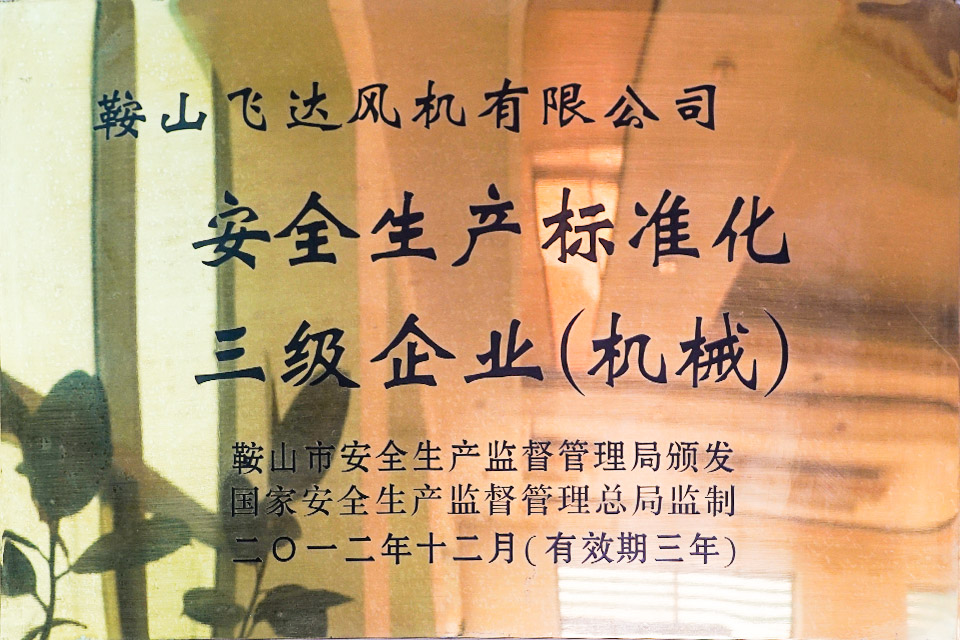 鞍山飞达风机有限公司
安全生产标准化
三级企业(机械)
鞍山市安全生产监督管理局颁发
国家安全生产监督管理总局监制
二〇一二年十二月(有效期三年)